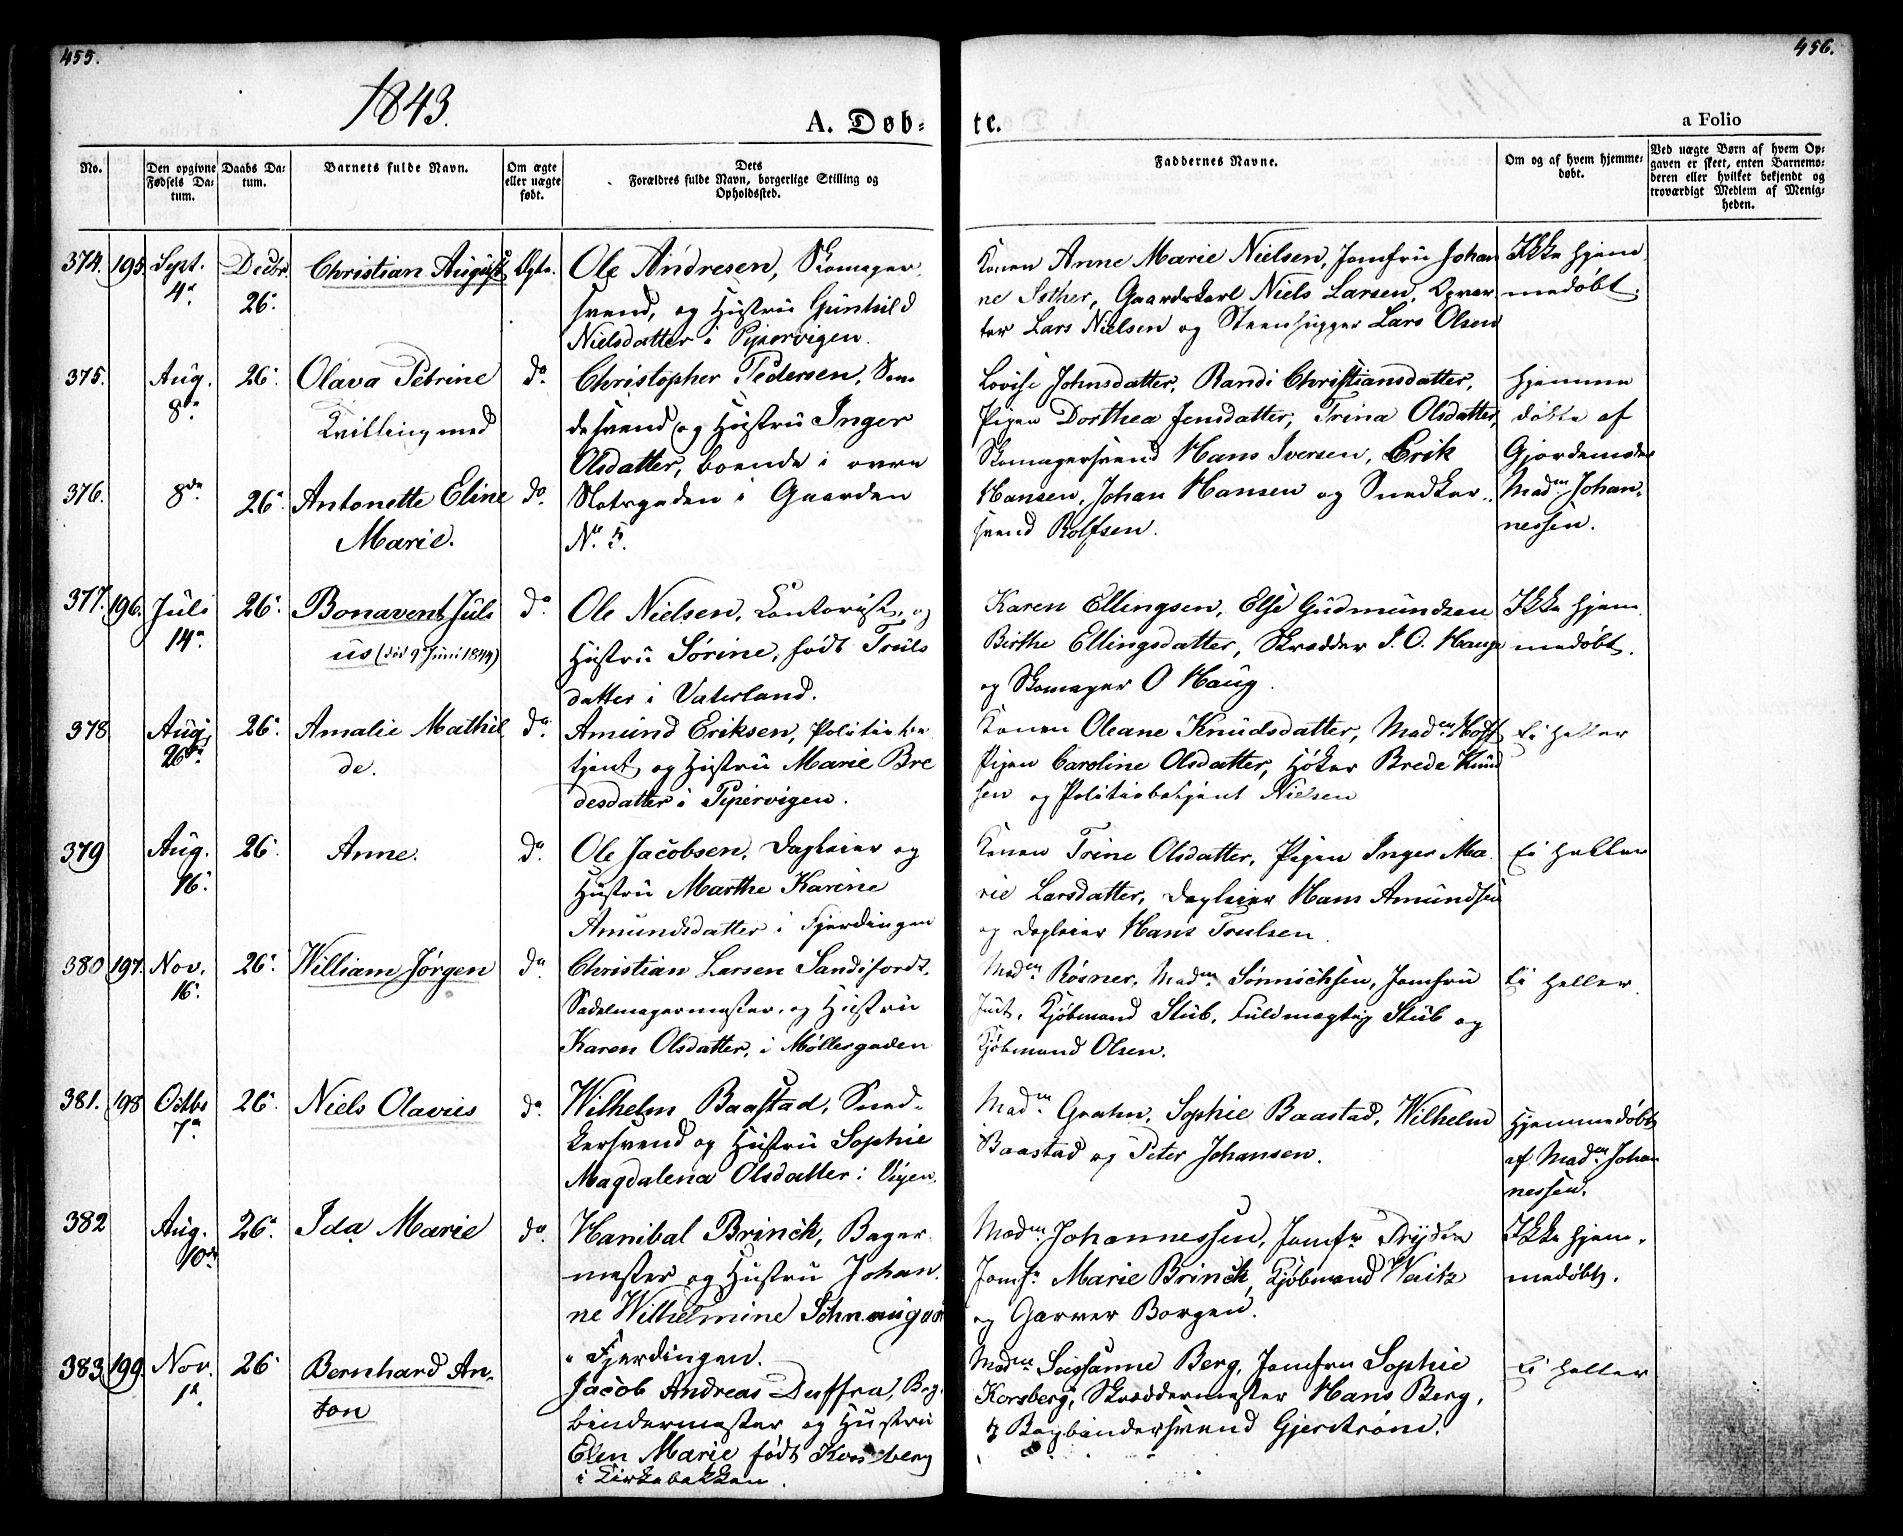 455.
456.
1843.
A. Døb-
te.
a Folio
No.
Den opgivne Fødsels Datum.
Daabs Datum.
Barnets fulde Navn.
Om ægte eller uægte født.
Dets Forældres fulde Navn, borgerlige Stilling og Opholdssted.
Faddernes Navne.
Om og af hvem hjemmedøbt.
Ved uægte Børn af hvem Opgaven er skeet, enten Barnemoderen eller hvilket bekjendt og troværdigt Medlem af Menigheden.
374. 195. Sept. Decbr. Christian August Ægte. Ole Andresen, Skomager
4de 26. svend, og Hustru Gunhild
Nielsdatter i Pipervigen.
Konen Anne Marie Nielsen, Jomfru Johan
ne Sether, Gaardskarl Niels Larsen, Opvar
ter Lars Nielsen og Steenhugger Lars Olsen
Ikke hjem
medøbt.
375. Aug. 26. Olava Petrine do. Christopher Pedersen, Sme
8de Tvilling med desvend og Hustru Inger
Olsdatter, boende i øvre
376. 8de 26. Antonette Eline do. Slotsgaden i Gaarden
Marie. No. 5.
Lovise Johnsdatter, Randi Christiansdatter,
Pigen Dorthea Jensdatter, Trina Olsdatter,
Skomagersvend Hans Iversen, Erik
Hansen, Johan Hansen og Snedker
svend Rolfsen.
Hjemme
døbte af
Gjordemoder
Madm Johan
nessen.
377. 196. Juli 26. Bonavent Juli do. Ole Nielsen, Contorist, og
14. us (død 9 Juni 1844) Hustru Sørine, født Truls
datter i Vaterland.
Karen Ellingsen, Else Gudmundsen
Birthe Ellingsdatter, Skrædder I. O. Hauge
og Skomager O Haug.
Ikke hjem
medøbt.
378 Aug. 26. Amalie Mathil do. Amund Eriksen, Politiebe
26de de. tjent og Hustru Marie Bre
desdatter i Pipervigen.
Konen Oleane Knudsdatter, Madm
Pigen Caroline Olsdatter, Høker Brede Knud
sen og Politiebetjent Nielsen
Ei heller
379 Aug. 26. Anne. do. Ole Jacobsen, Dagleier og
16. Hustru Marthe Karine
Amundsdatter i Fjerdingen
Konen Trine Olsdatter, Pigen Inger Ma
rie Larsdatter, Dagleier Hans Amundsen
og Dagleier Hans Trulsen.
Ei heller
380 197. Nov. 26. William Jørgen do. Christian Larsen Sandifordt,
16. Sadelmagermester, og Hustru
Karen Olsdatter, i Møllergaden
Madm Røsner, Madm Sønnichsen, Jomfru
Juut, Kjøbmand Stub, Fuldmægtig Stub og
Kjøbmand Olsen.
Ei heller.
381. 198 Octbr 26. Niels Olavus do. Wilhelm Baastad, Sned-
7de kersvend og Hustru Sophie
Magdalena Olsdatter i Vigen.
Madm Sophie Baastad, Wilhelm
Baastad og Peter Johansen.
Hjemmedøbt
af Madm Johan
nessen.
382 Aug. 26. Ida Marie do. Hanibal Brinck, Bager
10de mester og Hustru Johan
ne Wilhelmine
i Fjerdingen.
Madm Johannessen, Jomfr
Jomfr Marie Brinck, Kjøbmand Waitz
og Garver Borgen.
Ikke hjem-
medøbt.
383. 199. Nov. 26 Bernhard An- Jacob Andreas Duffra, Bog
1de ton bindermester og Hustru
Elen Marie født Korsberg
i Kirkebakken.
Madm Sussanne Berg, Jomfru Sophie
Korsberg, Skræddermester Hans Berg,
og Bogbindersvend Gjerstrøm.
Ei heller